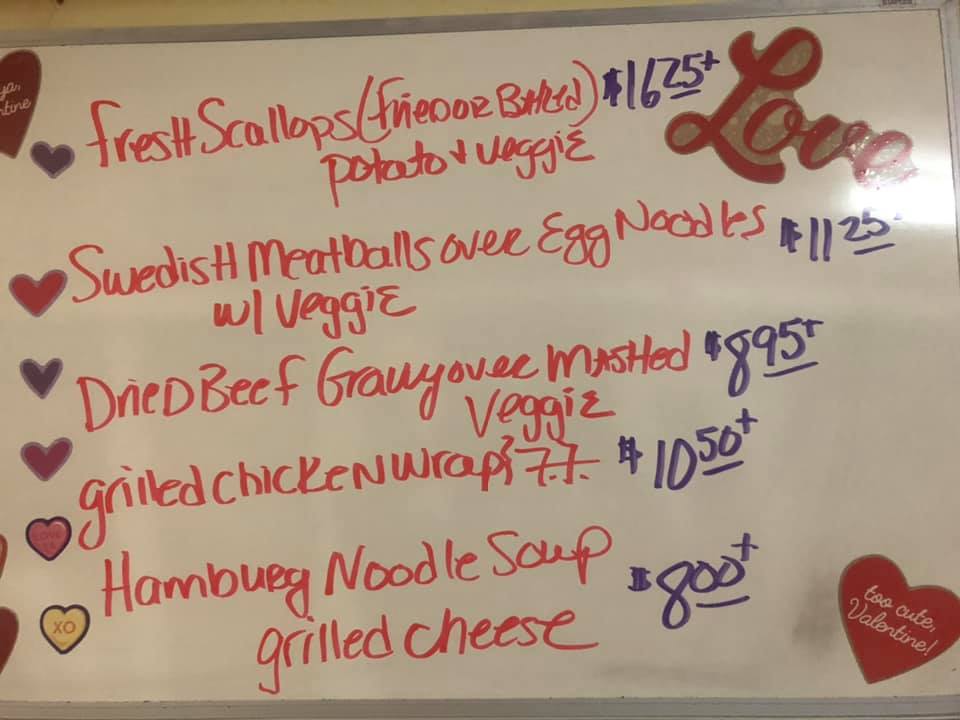 Fresh Scallops (Fried or Baked) $16 25+
potato + veggie
Love
Swedish Meatballs over Egg Noodles $11 25+
w/ veggie
Dried Beef Gravy over Mashed $8 95+
Veggie
grilled chicken wrap & F.F. $10 50+
Hamburg Noodle Soup $8 00+
grilled cheese
XO
too cute,
Valentine!